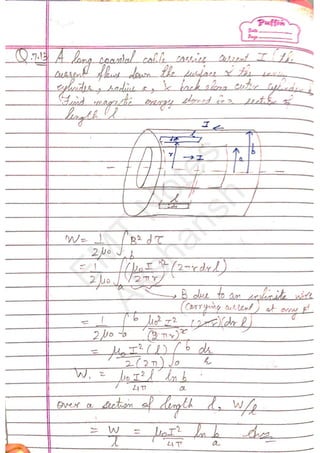 Puffin
Date
Page
Q.7.13 A long coaxial cable carries current I (the
current flows down the surface of the inner
cylinder, radius a, & back along outer cylinder
Find magnetic energy stored in a section of
length l
I ←
r → I a b
W = 1/2μ₀ ∫ B² dτ
= 1/2μ₀ ∫ₐᵇ (μ₀I/2πr)² (2πrdrl)
→ B due to an infinite wire
(carrying current) at any r
= 1/2μ₀ ∫ₐᵇ μ₀²I²/(2πr)² (2πr)(drl)
= μ₀I²(l)/2(2π) ∫ₐᵇ dr/r
W. = μ₀I²l/4π ln b/a
over a section of length l, W/l
= W/l = μ₀I²/4π ln b/a Ans.
EMT Notes